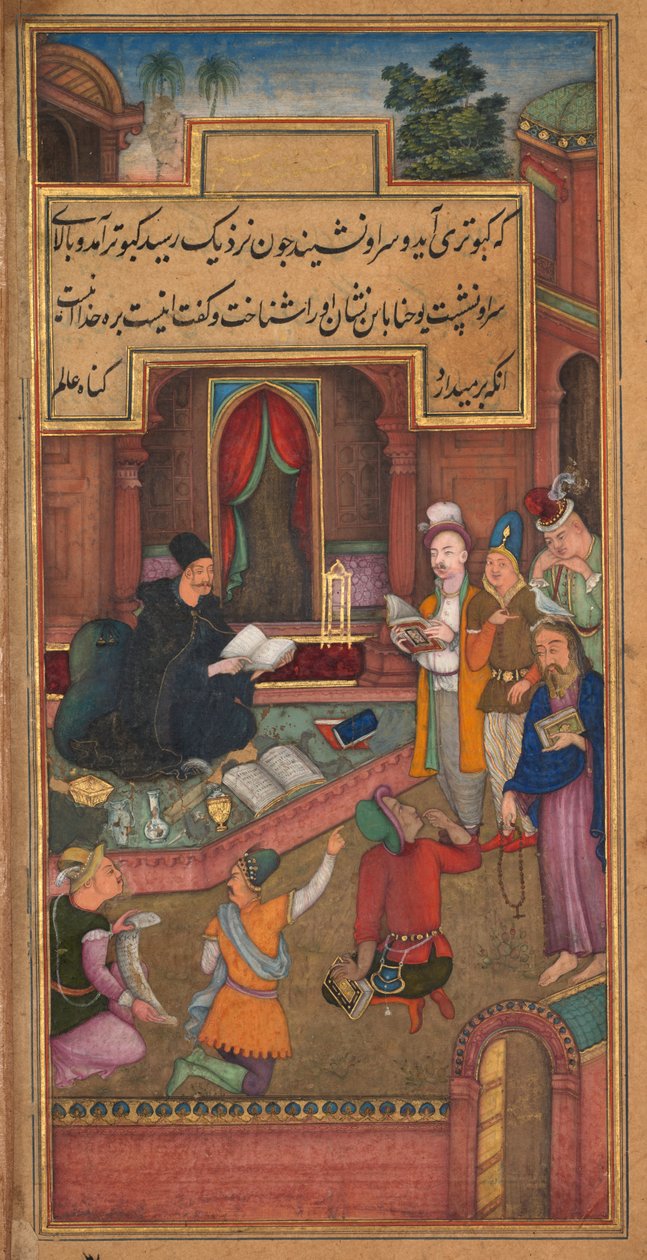 که کبوتری آید و سر او نشیند جون نزدیک رسید کبوتر آمد و بالای
سر او نشست یوحنا باین نشان او را شناخت و کفت اینست بره خدا اینست
انکه برمیدارد کناه عالم